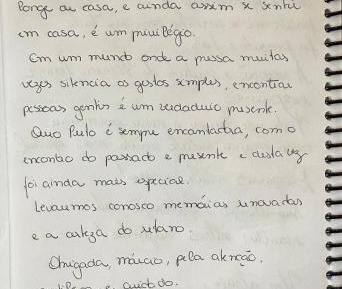 longe da casa, e ainda assim se sentir
em casa, é um privilégio.
Em um mundo onde a pressa muitas
vezes silencia os gestos simples, encontrar
pessoas gentis é um verdadeiro presente.
Ouro Preto é sempre encantadora, com o
encontro do passado e presente e desta vez
foi ainda mais especial.
Levaremos conosco memórias renovadas
e a certeza do retorno.
Obrigada, Márcio, pela atenção,
e cuidado.